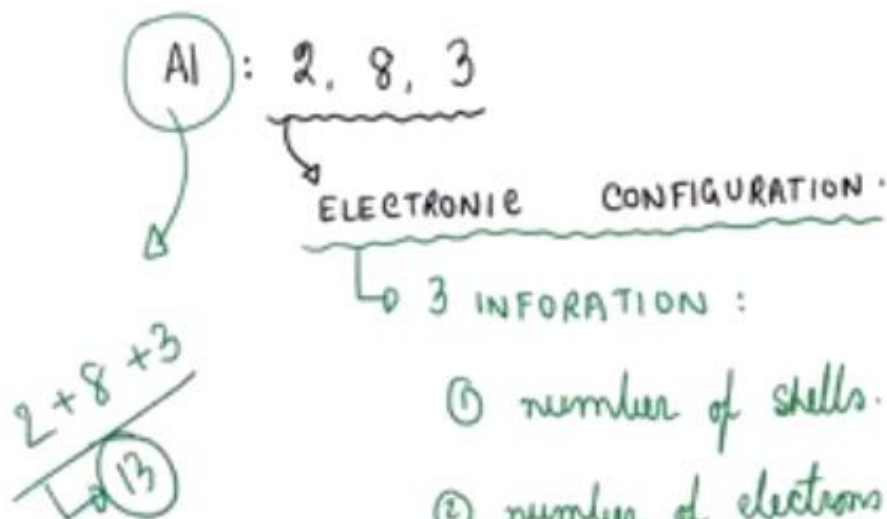 Al : 2, 8, 3
ELECTRONIC CONFIGURATION.
3 INFORATION :
2+8+3
13
① number of shells.
② number of electrons